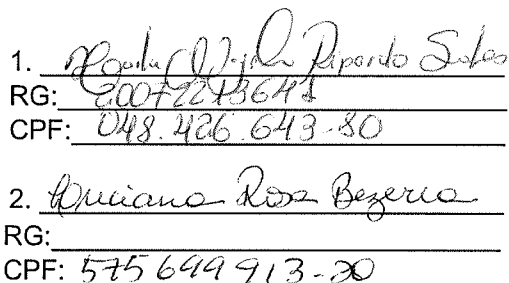 1. Ripardo
RG: 20072213641
CPF: 048.426.643-80
2. Luciana Rosa Bezerra
RG:
CPF: 575699913-20